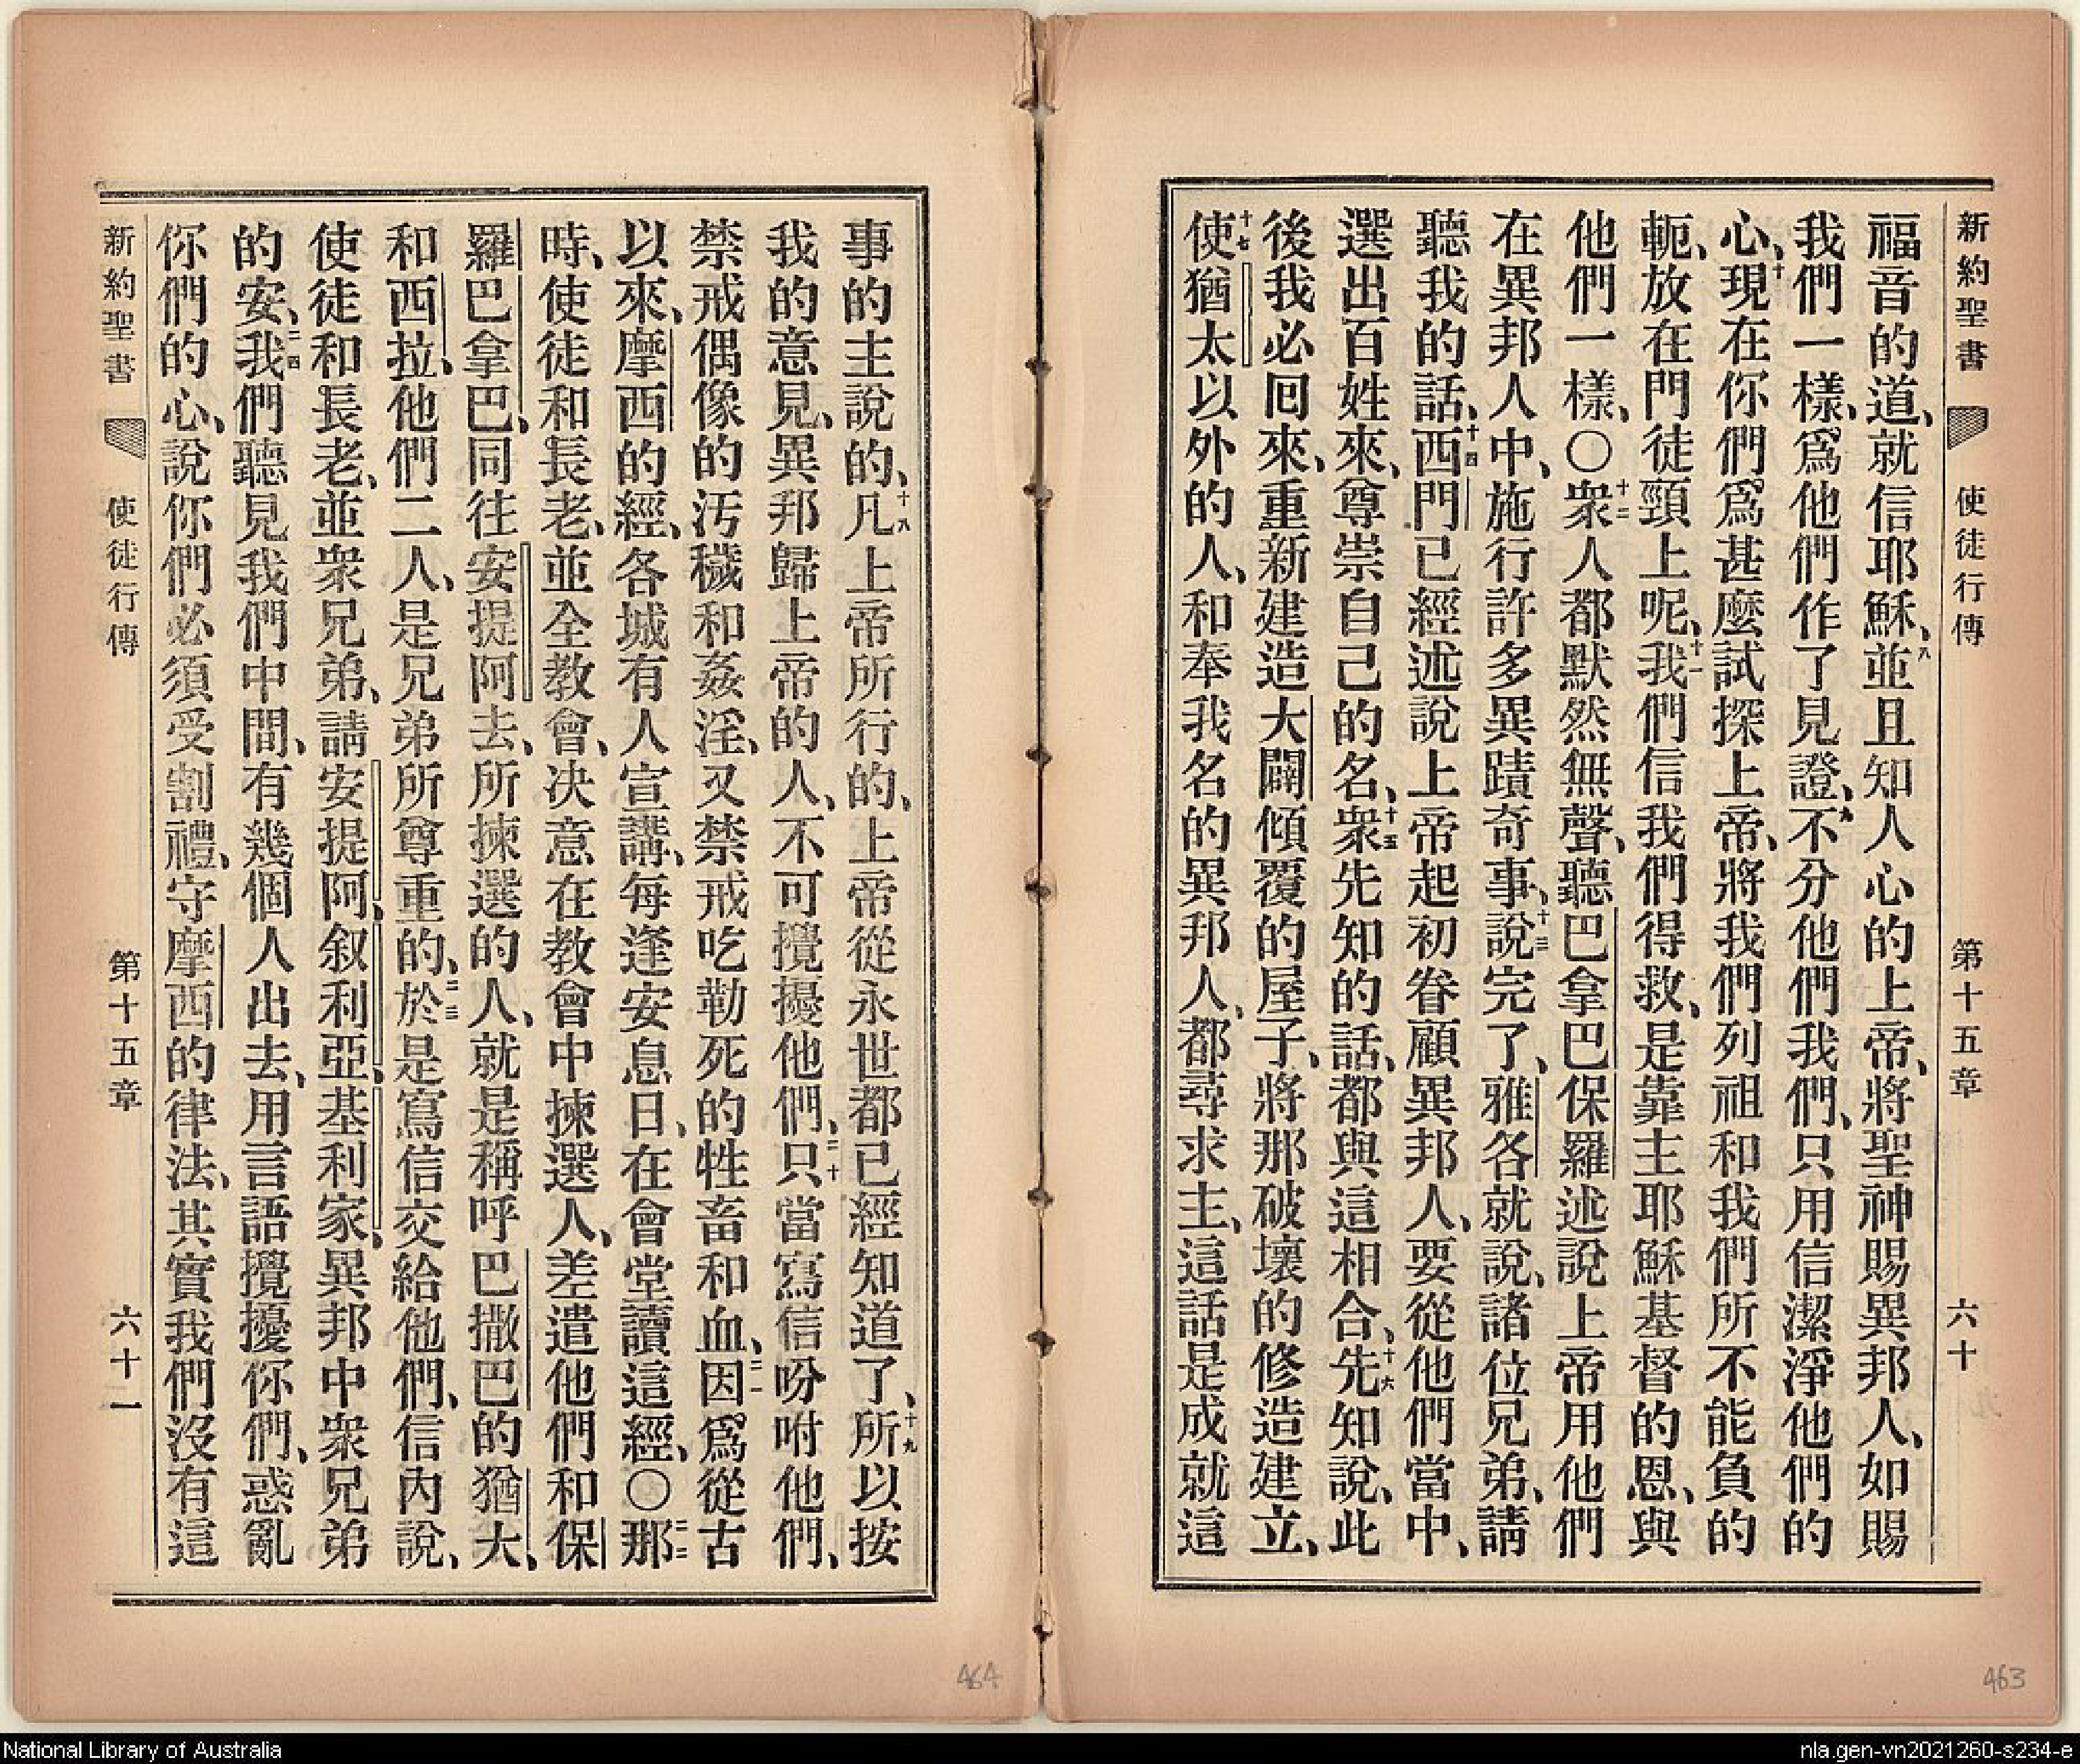 新約聖書 使徒行傳 第十五章 六十
福音的道、就信耶穌、八並且知人心的上帝、將聖神賜異邦人、如賜
我們一樣、爲他們作了見證、九不分他們我們、只用信潔淨他們的
心、十現在你們爲甚麼試探上帝、將我們列祖和我們所不能負的
軛、放在門徒頸上呢、十一我們信我們得救、是靠主耶穌基督的恩、與
他們一樣、○十二衆人都默然無聲、聽巴拿巴保羅述說上帝用他們
在異邦人中、施行許多異蹟奇事、十三說完了、雅各就說、諸位兄弟、請
聽我的話、十四西門已經述說上帝起初眷顧異邦人、要從他們當中、
選出百姓來、尊崇自己的名、十五衆先知的話、都與這相合、十六先知說、此
後我必囘來、重新建造大闢傾覆的屋子、將那破壞的修造建立、
十七使猶太以外的人、和奉我名的異邦人、都尋求主、這話是成就這
事的主說的、十八凡上帝所行的、上帝從永世都已經知道了、十九所以按
我的意見、異邦歸上帝的人、不可攪擾他們、二十只當寫信吩咐他們、
禁戒偶像的汚穢和姦淫、又禁戒吃勒死的牲畜和血、二一因爲從古
以來、摩西的經、各城有人宣講、每逢安息日、在會堂讀這經、○二二那
時、使徒和長老、並全教會、決意在教會中揀選人、差遣他們和保
羅巴拿巴、同往安提阿去、所揀選的人、就是稱呼巴撒巴的猶大、
和西拉、他們二人、是兄弟所尊重的、二三於是寫信交給他們、信內說、
使徒和長老、並衆兄弟、請安提阿、叙利亞、基利家、異邦中衆兄弟
的安、二四我們聽見我們中間、有幾個人出去、用言語攪擾你們、惑亂
你們的心、說你們必須受割禮、守摩西的律法、其實我們沒有這
新約聖書 使徒行傳 第十五章 六十一
464
463
National Library of Australia
nla.gen-vn2021260-s234-e